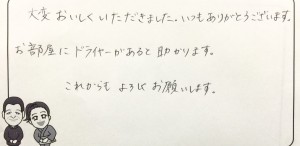 大変おいしくいただきました。いつもありがとうございます。
お部屋にドライヤーがあると助かります。
これからもよろしくお願いします。